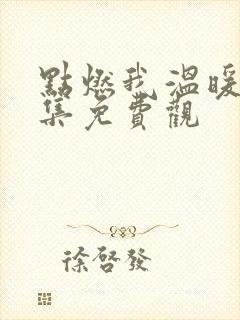 點燃我溫暖
集免費觀
徐啓發